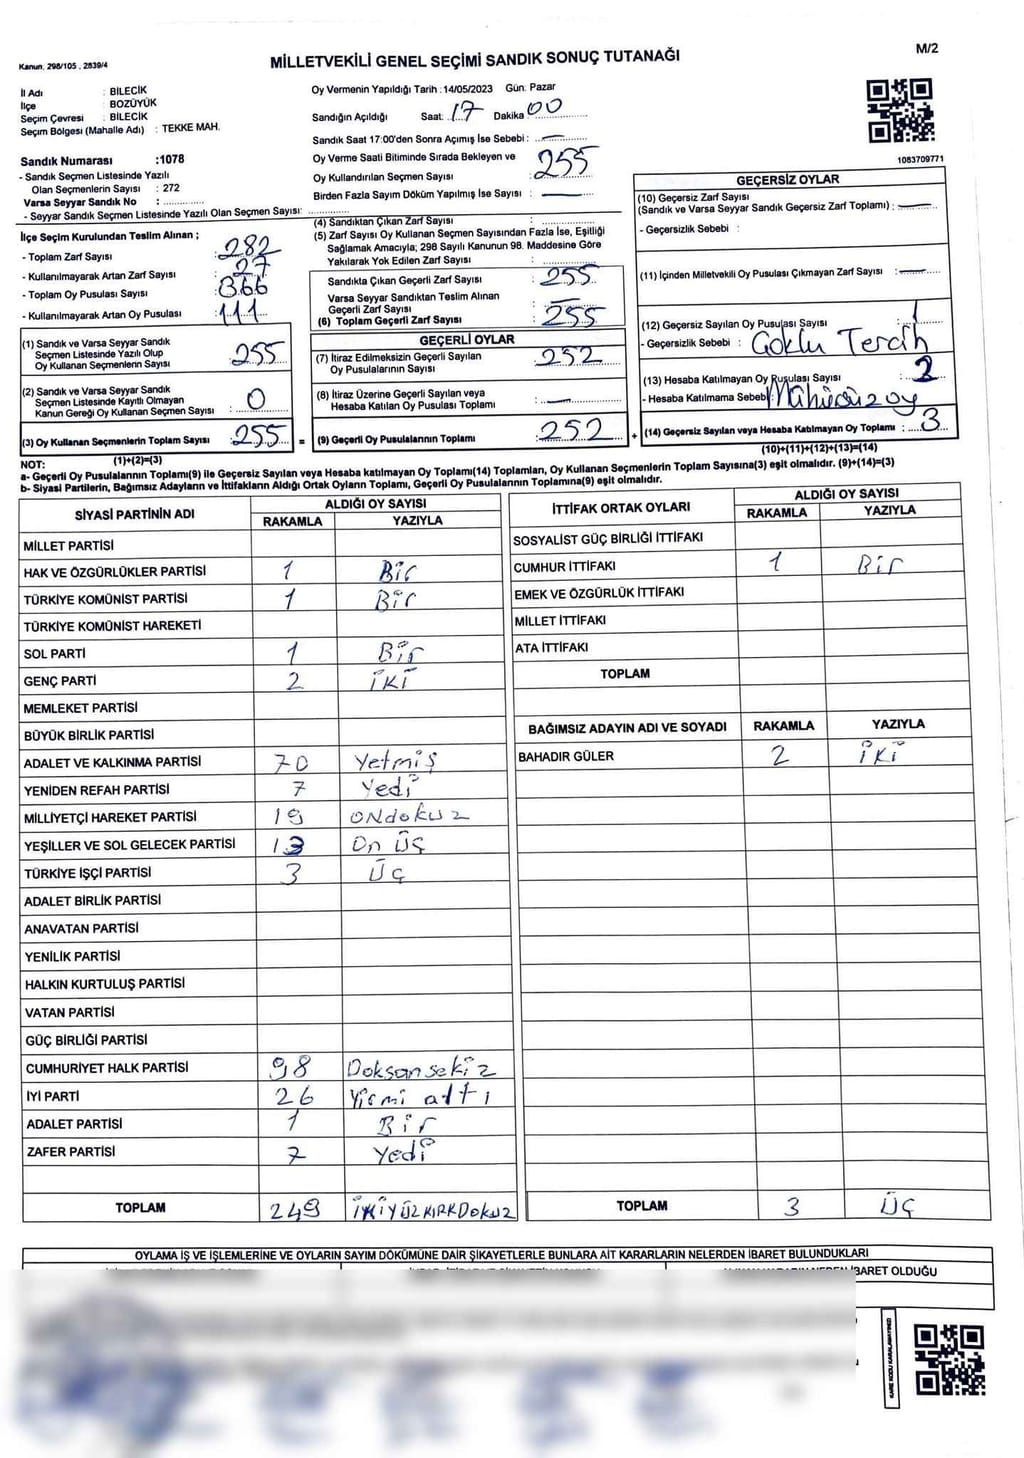 Kanun. 298/105 . 2839/4
MİLLETVEKİLİ GENEL SEÇİMİ SANDIK SONUÇ TUTANAĞI
M/2
İl Adı : BİLECİK
İlçe : BOZÜYÜK
Seçim Çevresi : BİLECİK
Seçim Bölgesi (Mahalle Adı) : TEKKE MAH.
Sandık Numarası :1078
- Sandık Seçmen Listesinde Yazılı
Olan Seçmenlerin Sayısı : 272
Varsa Seyyar Sandık No : ..............
- Seyyar Sandık Seçmen Listesinde Yazılı Olan Seçmen Sayısı: ..............
Oy Vermenin Yapıldığı Tarih :14/05/2023 Gün: Pazar
Sandığın Açıldığı Saat: 17 Dakika 00
Sandık Saat 17:00'den Sonra Açımış İse Sebebi : —
Oy Verme Saati Bitiminde Sırada Bekleyen ve
Oy Kullandırılan Seçmen Sayısı : 255
Birden Fazla Sayım Döküm Yapılmış İse Sayısı : —
1083709771
İlçe Seçim Kurulundan Teslim Alınan ;
- Toplam Zarf Sayısı : 282
- Kullanılmayarak Artan Zarf Sayısı : 27
- Toplam Oy Pusulası Sayısı : 366
- Kullanılmayarak Artan Oy Pusulası : 111
(1) Sandık ve Varsa Seyyar Sandık
Seçmen Listesinde Yazılı Olup
Oy Kullanan Seçmenlerin Sayısı : 255
(2) Sandık ve Varsa Seyyar Sandık
Seçmen Listesinde Kayıtlı Olmayan
Kanun Gereği Oy Kullanan Seçmen Sayısı : 0
(3) Oy Kullanan Seçmenlerin Toplam Sayısı : 255
(1)+(2)=(3)
(4) Sandıktan Çıkan Zarf Sayısı : ..............
(5) Zarf Sayısı Oy Kullanan Seçmen Sayısından Fazla İse, Eşitliği
Sağlamak Amacıyla; 298 Sayılı Kanunun 98. Maddesine Göre
Yakılarak Yok Edilen Zarf Sayısı : ..............
Sandıkta Çıkan Geçerli Zarf Sayısı : 255
Varsa Seyyar Sandıktan Teslim Alınan
Geçerli Zarf Sayısı : —
(6) Toplam Geçerli Zarf Sayısı : 255
GEÇERLİ OYLAR
(7) İtiraz Edilmeksizin Geçerli Sayılan
Oy Pusulalarının Sayısı : 252
(8) İtiraz Üzerine Geçerli Sayılan veya
Hesaba Katılan Oy Pusulası Toplamı : —
= (9) Geçerli Oy Pusulalarının Toplamı : 252 +
GEÇERSİZ OYLAR
(10) Geçersiz Zarf Sayısı
(Sandık ve Varsa Seyyar Sandık Geçersiz Zarf Toplamı) : —
- Geçersizlik Sebebi :
(11) İçinden Milletvekili Oy Pusulası Çıkmayan Zarf Sayısı : —
(12) Geçersiz Sayılan Oy Pusulası Sayısı : 1
- Geçersizlik Sebebi : Çoklu Tercih
(13) Hesaba Katılmayan Oy Pusulası Sayısı : 2
- Hesaba Katılmama Sebebi: Mühürsüz oy
(14) Geçersiz Sayılan veya Hesaba Katılmayan Oy Toplamı : 3
(10)+(11)+(12)+(13)=(14)
NOT:
a- Geçerli Oy Pusulalarının Toplamı(9) ile Geçersiz Sayılan veya Hesaba katılmayan Oy Toplamı(14) Toplamları, Oy Kullanan Seçmenlerin Toplam Sayısına(3) eşit olmalıdır. (9)+(14)=(3)
b- Siyasi Partilerin, Bağımsız Adayların ve İttifakların Aldığı Ortak Oyların Toplamı, Geçerli Oy Pusulalarının Toplamına(9) eşit olmalıdır.
SİYASİ PARTİNİN ADI ALDIĞI OY SAYISI
RAKAMLA YAZIYLA
MİLLET PARTİSİ
HAK VE ÖZGÜRLÜKLER PARTİSİ 1 Bir
TÜRKİYE KOMÜNİST PARTİSİ 1 Bir
TÜRKİYE KOMÜNİST HAREKETİ
SOL PARTİ 1 Bir
GENÇ PARTİ 2 İKİ
MEMLEKET PARTİSİ
BÜYÜK BİRLİK PARTİSİ
ADALET VE KALKINMA PARTİSİ 70 Yetmiş
YENİDEN REFAH PARTİSİ 7 Yedi
MİLLİYETÇİ HAREKET PARTİSİ 19 ondokuz
YEŞİLLER VE SOL GELECEK PARTİSİ 13 On Üç
TÜRKİYE İŞÇİ PARTİSİ 3 Üç
ADALET BİRLİK PARTİSİ
ANAVATAN PARTİSİ
YENİLİK PARTİSİ
HALKIN KURTULUŞ PARTİSİ
VATAN PARTİSİ
GÜÇ BİRLİĞİ PARTİSİ
CUMHURİYET HALK PARTİSİ 98 Doksansekiz
İYİ PARTİ 26 Yirmi altı
ADALET PARTİSİ 1 Bir
ZAFER PARTİSİ 7 Yedi
TOPLAM 249 İKİYÜZKIRKDokuz
İTTİFAK ORTAK OYLARI ALDIĞI OY SAYISI
RAKAMLA YAZIYLA
SOSYALİST GÜÇ BİRLİĞİ İTTİFAKI
CUMHUR İTTİFAKI 1 Bir
EMEK VE ÖZGÜRLÜK İTTİFAKI
MİLLET İTTİFAKI
ATA İTTİFAKI
TOPLAM
BAĞIMSIZ ADAYIN ADI VE SOYADI RAKAMLA YAZIYLA
BAHADIR GÜLER 2 İKİ
TOPLAM 3 ÜÇ
OYLAMA İŞ VE İŞLEMLERİNE VE OYLARIN SAYIM DÖKÜMÜNE DAİR ŞİKAYETLERLE BUNLARA AİT KARARLARIN NELERDEN İBARET BULUNDUKLARI
İBARET OLDUĞU
KARE KODU KARALAMAYINIZ!